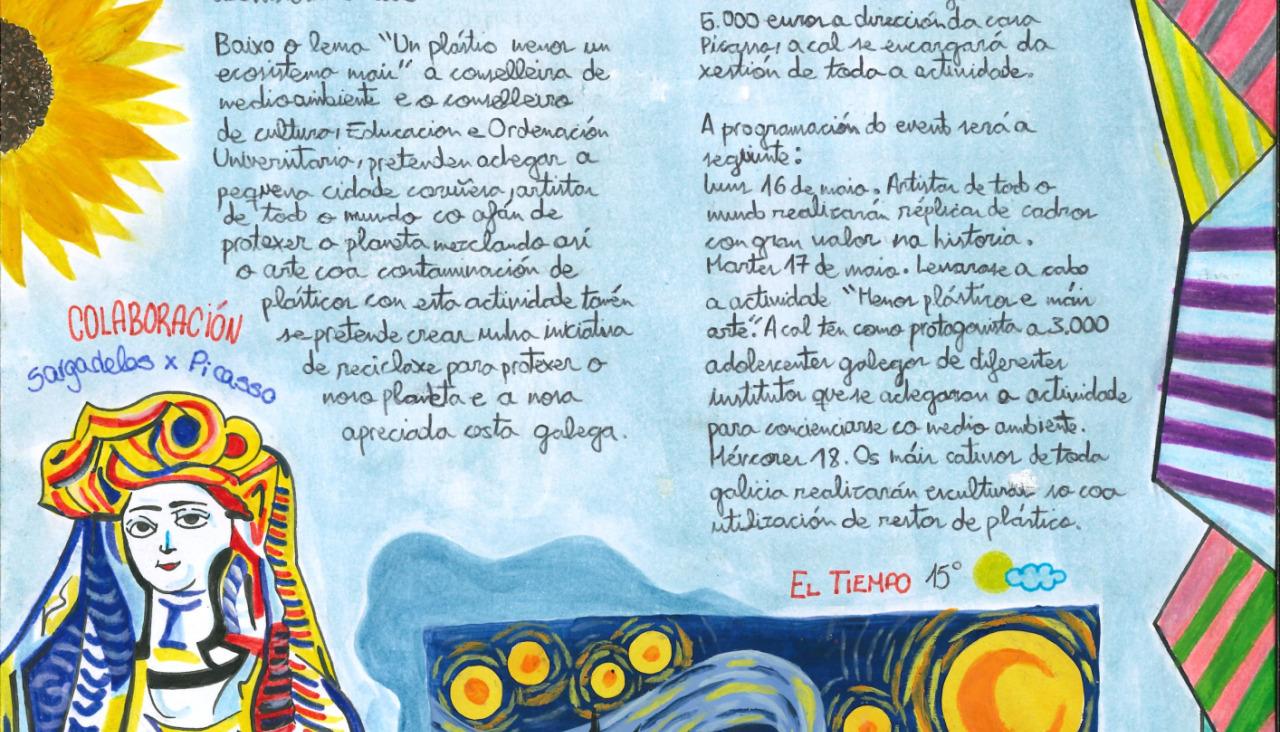 Baixo o lema "Un plástio menos un
ecosistema mais" a conselleira de
medioambiente e o conselleiro
de cultura, Educacion e Ordenación
Universitaria, pretenden achegar a
pequena cidade coruñesa, artistas
de todo o mundo co afán de
protexer o planeta mezclando así
o arte coa contaminación de
plásticos con esta actividade tamén
se pretende crear unha iniciativa
de reciclaxe para protexer o
noso planeta e a nosa
apreciada costa galega.
COLABORACIÓN
Sargadelos x Picasso
6.000 euros a dirección da casa
Picasso, a cal se encargará da
xestión de toda a actividade.
A programación do event será a
seguinte:
Luns 16 de maio. Artistas de todo o
mundo realizarán réplicas de cadros
con gran valor na historia.
Martes 17 de maio. Levarase a cabo
a actividade "Menos plásticos e máis
arte". A cal ten como protagonista a 3.000
adolescentes galegos de diferentes
institutos que se achegaran a actividade
para concienciarse co medio ambiente.
Mércores 18. Os máis cativos de toda
galicia realizarán esculturas so coa
utilización de restos de plástico.
EL TIEMPO 15°